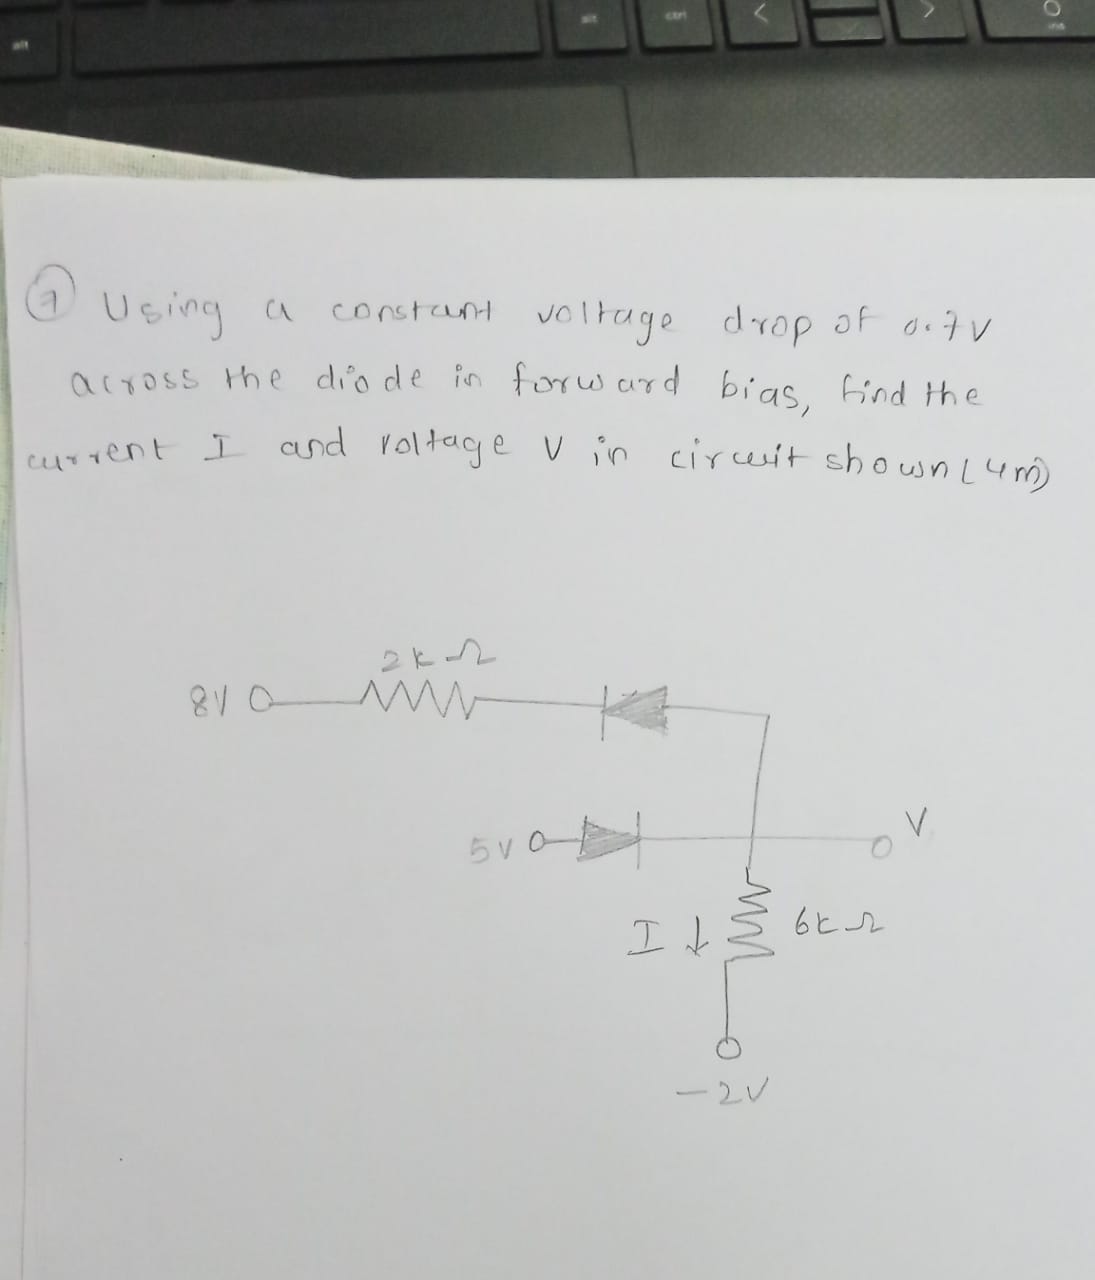 alt
alt
ctrl
<
>
ins
7 Using a constant voltage drop of 0.7V
across the diode in forward bias, find the
current I and voltage V in circuit shown (4m)
2kΩ
8V
5V
V
I ↓
6kΩ
-2V